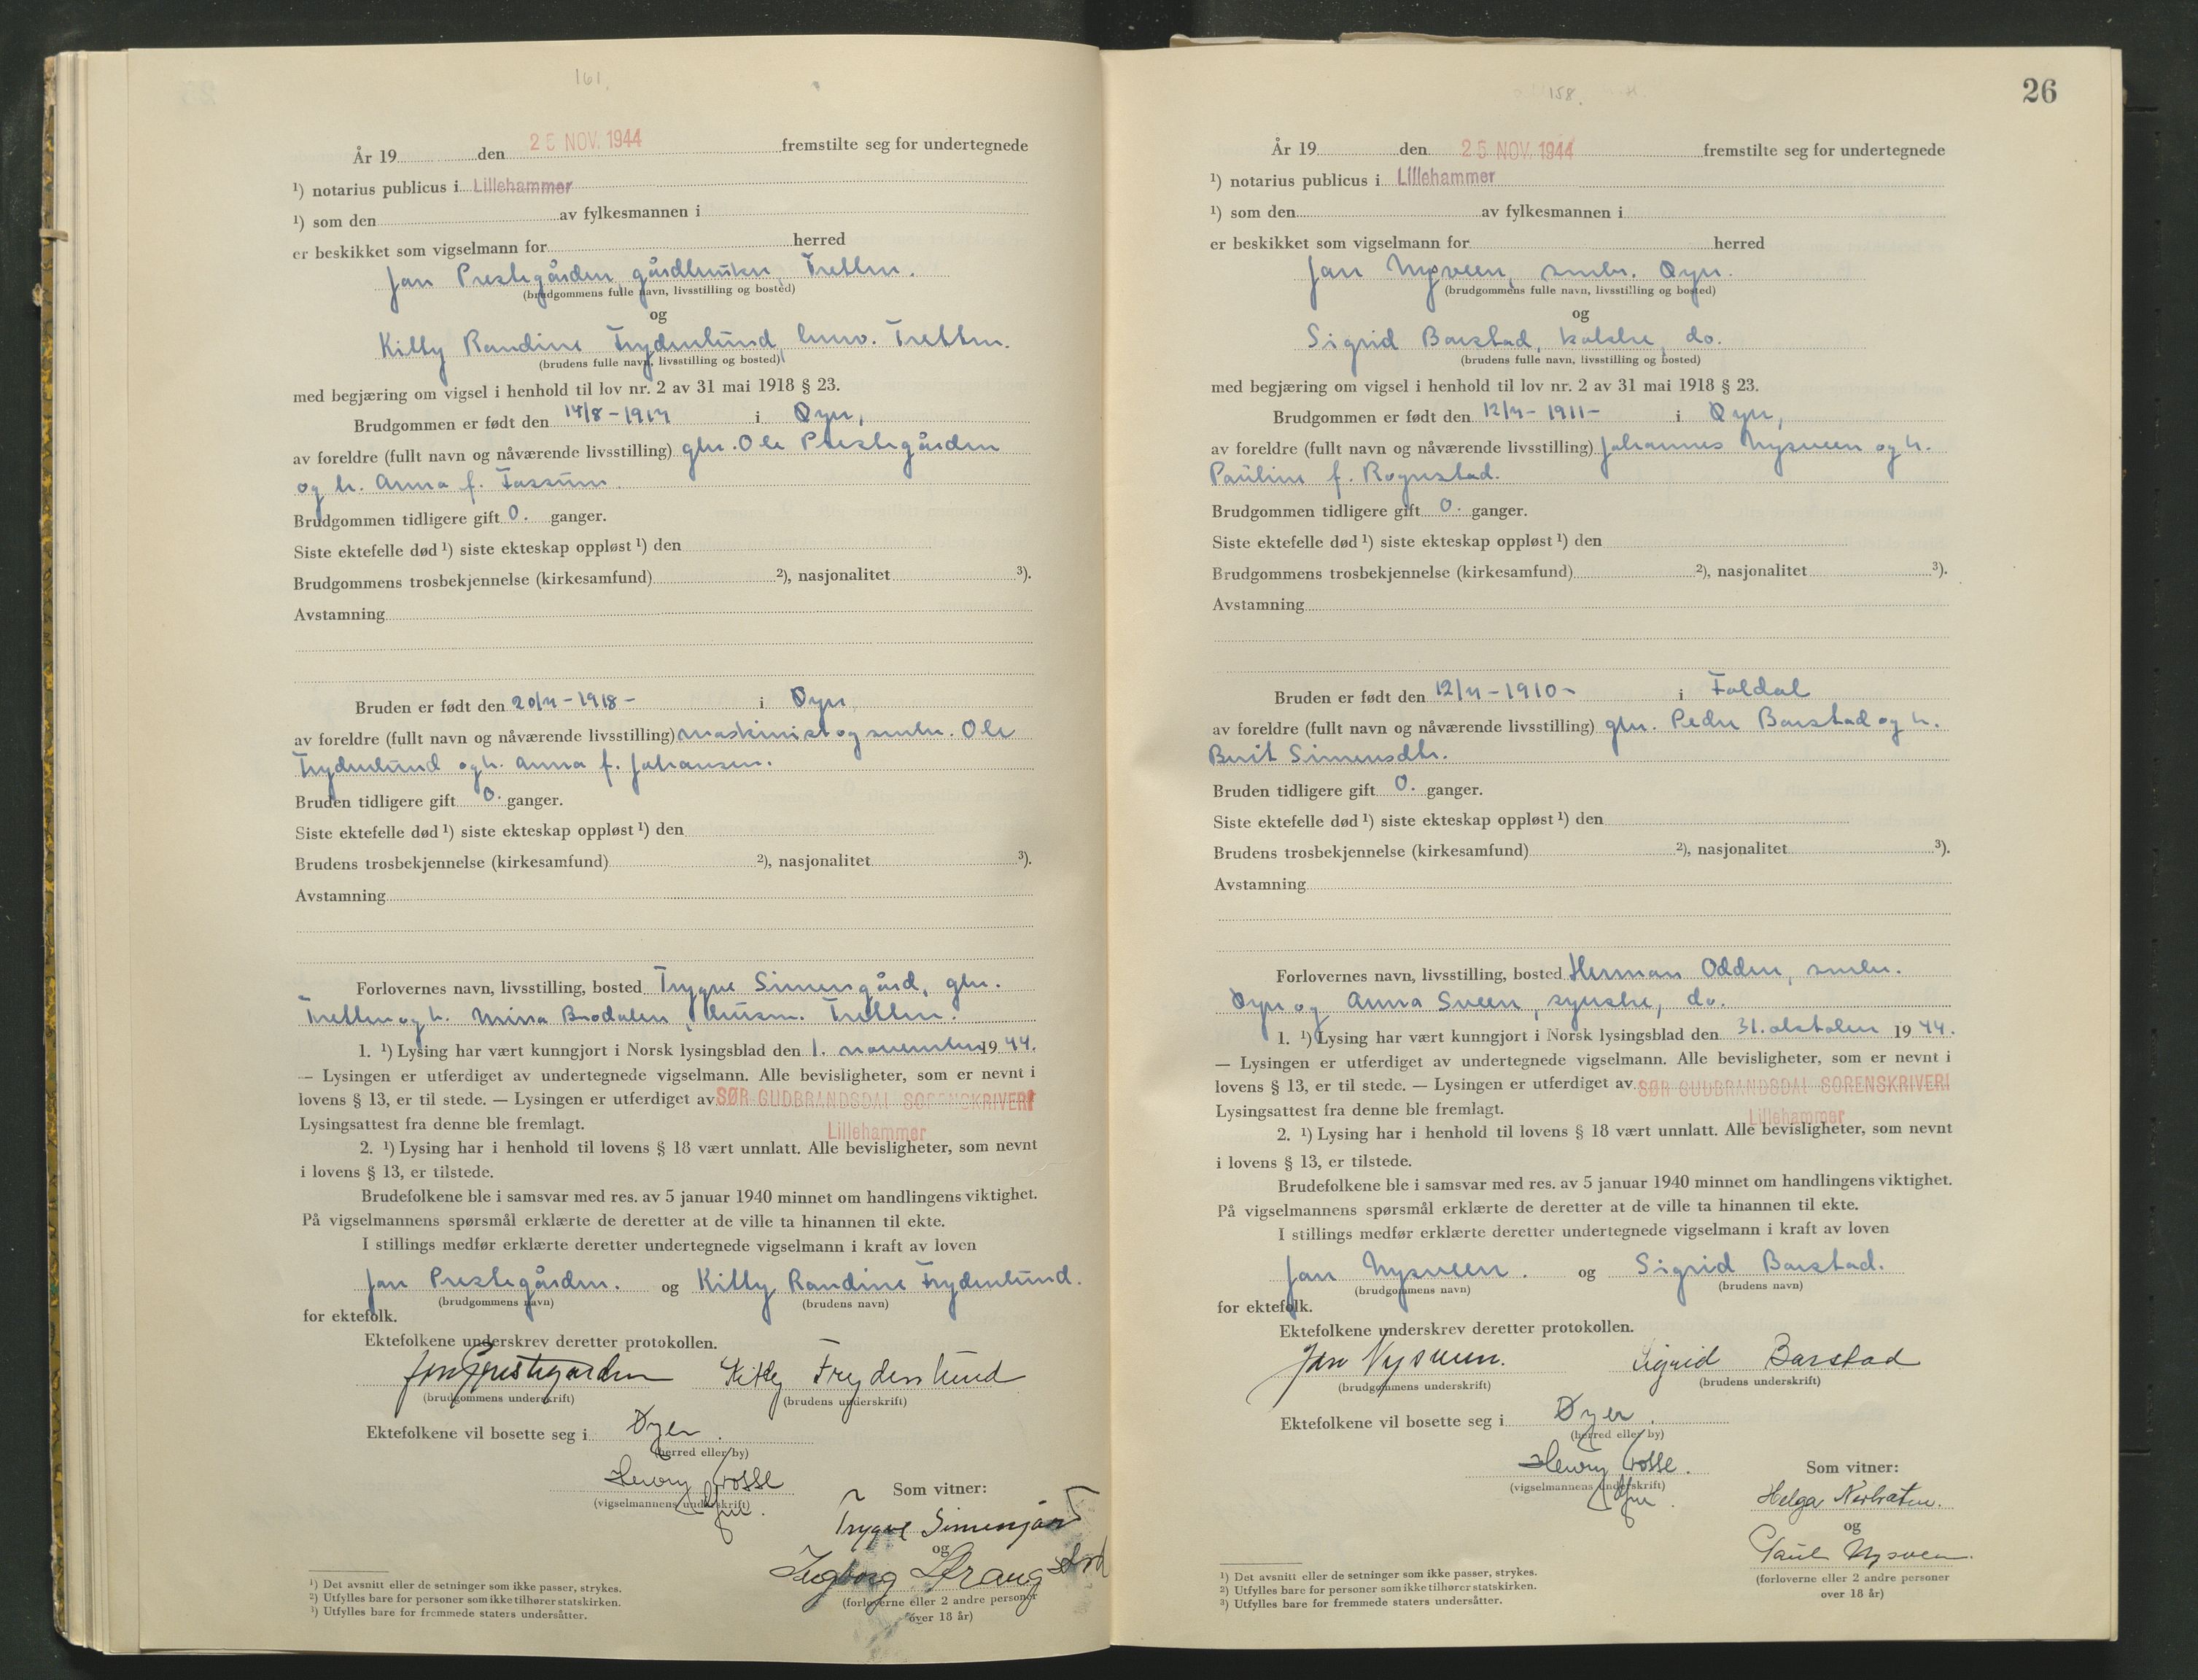 161.
År 19 den 25 NOV. 1944 fremstilte seg for undertegnede
¹) notarius publicus i Lillehammer
¹) som den av fylkesmannen i
er beskikket som vigselmann for herred
Jan Prestegården, gårdbruker Tretten.
(brudgommens fulle navn, livsstilling og bosted)
og
Kitty Randine Frydenlund, husv. Tretten.
(brudens fulle navn, livsstilling og bosted)
med begjæring om vigsel i henhold til lov nr. 2 av 31 mai 1918 § 23.
Brudgommen er født den 14/8-1914 i Øyer,
av foreldre (fullt navn og nåværende livsstilling) gbr. Ole Prestegården
og h. Anna f. Fossum.
Brudgommen tidligere gift 0. ganger.
Siste ektefelle død ¹) siste ekteskap oppløst ¹) den
Brudgommens trosbekjennelse (kirkesamfund) ²), nasjonalitet ³).
Avstamning
Bruden er født den 20/4-1918- i Øyer
av foreldre (fullt navn og nåværende livsstilling) maskinist og smbr. Ole
Frydenlund og h. Anna f. Johansen.
Bruden tidligere gift 0. ganger.
Siste ektefelle død ¹) siste ekteskap oppløst ¹) den
Brudens trosbekjennelse (kirkesamfund) ²), nasjonalitet ³).
Avstamning
Forlovernes navn, livsstilling, bosted Trygve Simengård, gbr.
Tretten og h. Minna Brodalen, husm. Tretten.
1. ¹) Lysing har vært kunngjort i Norsk lysingsblad den 1. november 1944.
— Lysingen er utferdiget av undertegnede vigselmann. Alle bevisligheter, som er nevnt i
lovens § 13, er til stede. — Lysingen er utferdiget av SØR GUDBRANDSDAL SORENSKRIVERI
Lysingsattest fra denne ble fremlagt. Lillehammer
2. ¹) Lysing har i henhold til lovens § 18 vært unnlatt. Alle bevisligheter, som nevnt
i lovens § 13, er tilstede.
Brudefolkene ble i samsvar med res. av 5 januar 1940 minnet om handlingens viktighet.
På vigselmannens spørsmål erklærte de deretter at de ville ta hinannen til ekte.
I stillings medfør erklærte deretter undertegnede vigselmann i kraft av loven
Jan Prestegården. og Kitty Randine Frydenlund.
(brudgommens navn) (brudens navn)
for ektefolk.
Ektefolkene underskrev deretter protokollen.
Jan Prestegarden Kitty Frydenlund
(brudgommens underskrift) (brudens underskrift)
Ektefolkene vil bosette seg i Øyer.
(herred eller by)
Henry Grosse
(vigselmannens underskrift)
Som vitner:
Trygve Simengård
og
Ingborg Strangstad
(forloverne eller 2 andre personer
over 18 år)
¹) Det avsnitt eller de setninger som ikke passer, strykes.
²) Utfylles bare for personer som ikke tilhører statskirken.
³) Utfylles bare for fremmede staters undersåtter.
26
158.
År 19 den 25 NOV. 1944 fremstilte seg for undertegnede
¹) notarius publicus i Lillehammer
¹) som den av fylkesmannen i
er beskikket som vigselmann for herred
Jan Nysveen, smbr. Øyer.
(brudgommens fulle navn, livsstilling og bosted)
og
Sigrid Barstad, kokke, do.
(brudens fulle navn, livsstilling og bosted)
med begjæring om vigsel i henhold til lov nr. 2 av 31 mai 1918 § 23.
Brudgommen er født den 12/4-1911- i Øyer,
av foreldre (fullt navn og nåværende livsstilling) Johannes Nysveen og h.
Pauline f. Rognstad.
Brudgommen tidligere gift 0. ganger.
Siste ektefelle død ¹) siste ekteskap oppløst ¹) den
Brudgommens trosbekjennelse (kirkesamfund) ²), nasjonalitet ³).
Avstamning
Bruden er født den 12/4-1910- i Foldal
av foreldre (fullt navn og nåværende livsstilling) gbr. Peder Barstad og h.
Berit Simensdtr.
Bruden tidligere gift 0. ganger.
Siste ektefelle død ¹) siste ekteskap oppløst ¹) den
Brudens trosbekjennelse (kirkesamfund) ²), nasjonalitet ³).
Avstamning
Forlovernes navn, livsstilling, bosted Herman Odden, smbr.
Øyer og Anna Sveen, syerske, do.
1. ¹) Lysing har vært kunngjort i Norsk lysingsblad den 31. oktober 1944.
— Lysingen er utferdiget av undertegnede vigselmann. Alle bevisligheter, som er nevnt i
lovens § 13, er til stede. — Lysingen er utferdiget av SØR GUDBRANDSDAL SORENSKRIVERI
Lysingsattest fra denne ble fremlagt. Lillehammer
2. ¹) Lysing har i henhold til lovens § 18 vært unnlatt. Alle bevisligheter, som nevnt
i lovens § 13, er tilstede.
Brudefolkene ble i samsvar med res. av 5 januar 1940 minnet om handlingens viktighet.
På vigselmannens spørsmål erklærte de deretter at de ville ta hinannen til ekte.
I stillings medfør erklærte deretter undertegnede vigselmann i kraft av loven
Jan Nysveen. og Sigrid Barstad.
(brudgommens navn) (brudens navn)
for ektefolk.
Ektefolkene underskrev deretter protokollen.
Jan Nysveen. Sigrid Barstad
(brudgommens underskrift) (brudens underskrift)
Ektefolkene vil bosette seg i Øyer.
(herred eller by)
Henry Grosse.
(vigselmannens underskrift)
Som vitner:
Helga
og
Paul Nysveen.
(forloverne eller 2 andre personer
over 18 år)
¹) Det avsnitt eller de setninger som ikke passer, strykes.
²) Utfylles bare for personer som ikke tilhører statskirken.
³) Utfylles bare for fremmede staters undersåtter.